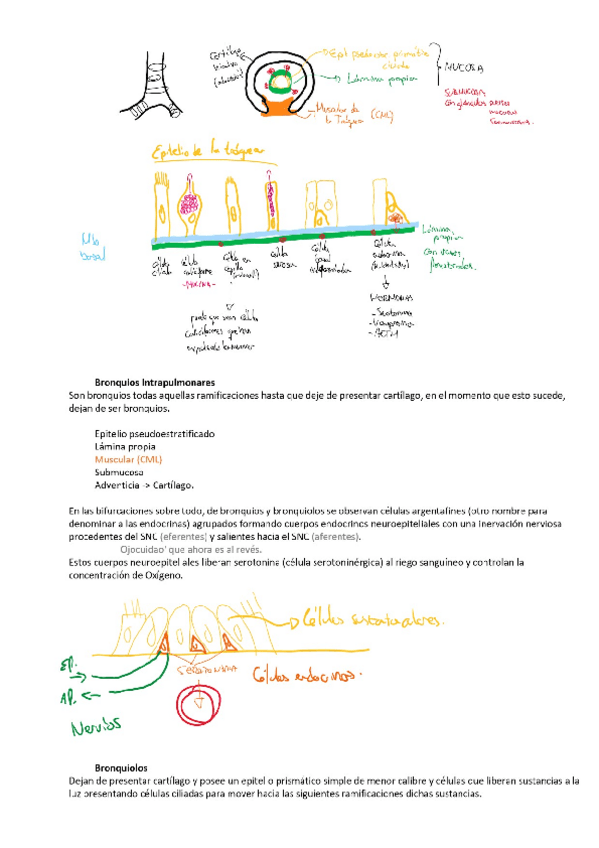 Cartílago
hialino
Epit. pseudoestr. prismático
ciliado
Lámina propia
MUCOSA
SUBMUCOSA
con glándulas
mucosas
Muscular de
la Tráquea (CML)
Epitelio de la tráquea
Mb
basal
Lámina
propia
con vasos
fenestrados.
célula
ciliada
célula
caliciforme
célula en
cepillo
célula
serosa
célula
basal
indiferenciada
Célula
endocrina
HORMONAS
- Serotonina
- ACTH
puede que sean células
caliciformes que han
expulsado
Bronquios Intrapulmonares
Son bronquios todas aquellas ramificaciones hasta que deje de presentar cartílago, en el momento que esto sucede,
dejan de ser bronquios.
Epitelio pseudoestratificado
Lámina propia
Muscular (CML)
Submucosa
Adventicia -> Cartílago.
En las bifurcaciones sobre todo, de bronquios y bronquiolos se observan células argentafines (otro nombre para
denominar a las endocrinas) agrupados formando cuerpos endocrinos neuroepiteliales con una inervación nerviosa
procedentes del SNC (eferentes) y salientes hacia el SNC (aferentes).
Ojocuidao' que ahora es al revés.
Estos cuerpos neuroepiteliales liberan serotonina (célula serotoninérgica) al riego sanguíneo y controlan la
concentración de Oxígeno.
Células sustentaculares.
EP.
AP.
Nervios
SEROTONINA
Células endocrinas.
Bronquiolos
Dejan de presentar cartílago y posee un epitelio prismático simple de menor calibre y células que liberan sustancias a la
luz presentando células ciliadas para mover hacia las siguientes ramificaciones dichas sustancias.